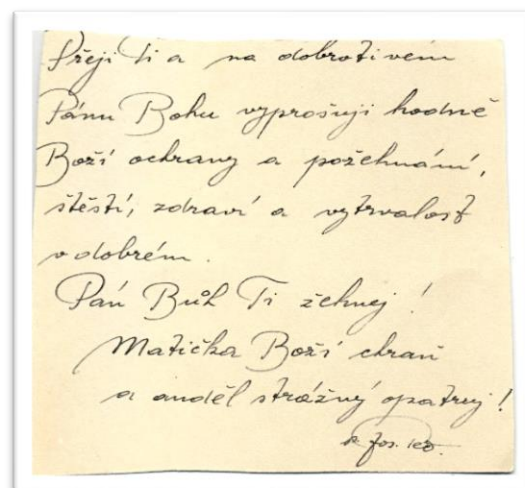 Přeji Ti a na dobrotivém
Pánu Bohu vyprošuji hodně
Boží ochrany a požehnání,
štěstí, zdraví a vytrvalost
v dobrém.
Pán Bůh Ti žehnej!
Matička Boží chraň
a anděl strážný opatruj!
Jos.